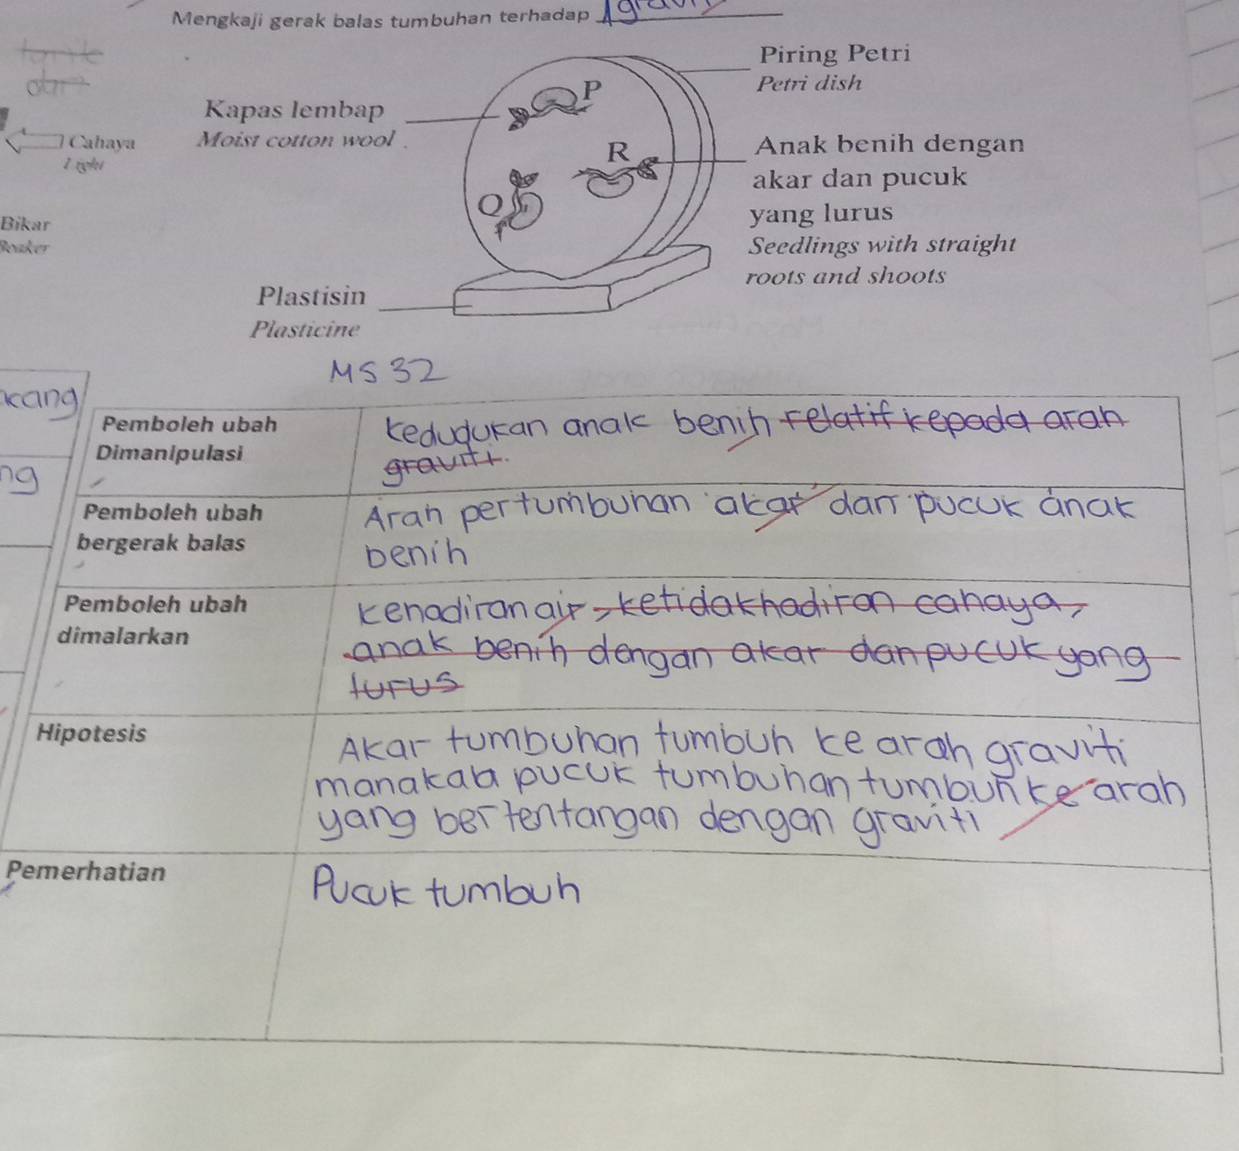 Mengkaji gerak balas tumbuhan terhadap graviti
Piring Petri
Petri dish
Kapas lembap
Moist cotton wool
P
R
Q
Cahaya
Light
Anak benih dengan
akar dan pucuk
yang lurus
Seedlings with straight
roots and shoots
Bikar
Beaker
Plastisin
Plasticine
MS 32
kang
ng
Pemboleh ubah
Dimanipulasi
kedudukan anak benih relatif kepada arah
graviti.
Pemboleh ubah
bergerak balas
Arah pertumbuhan akar dan pucuk anak
benih
Pemboleh ubah
dimalarkan
kehadiran air, ketidakhadiran cahaya,
anak benih dengan akar dan pucuk yang
lurus
Hipotesis
Akar tumbuhan tumbuh ke arah graviti
manakala pucuk tumbuhan tumbuh ke arah
yang bertentangan dengan graviti
Pemerhatian
Pucuk tumbuh